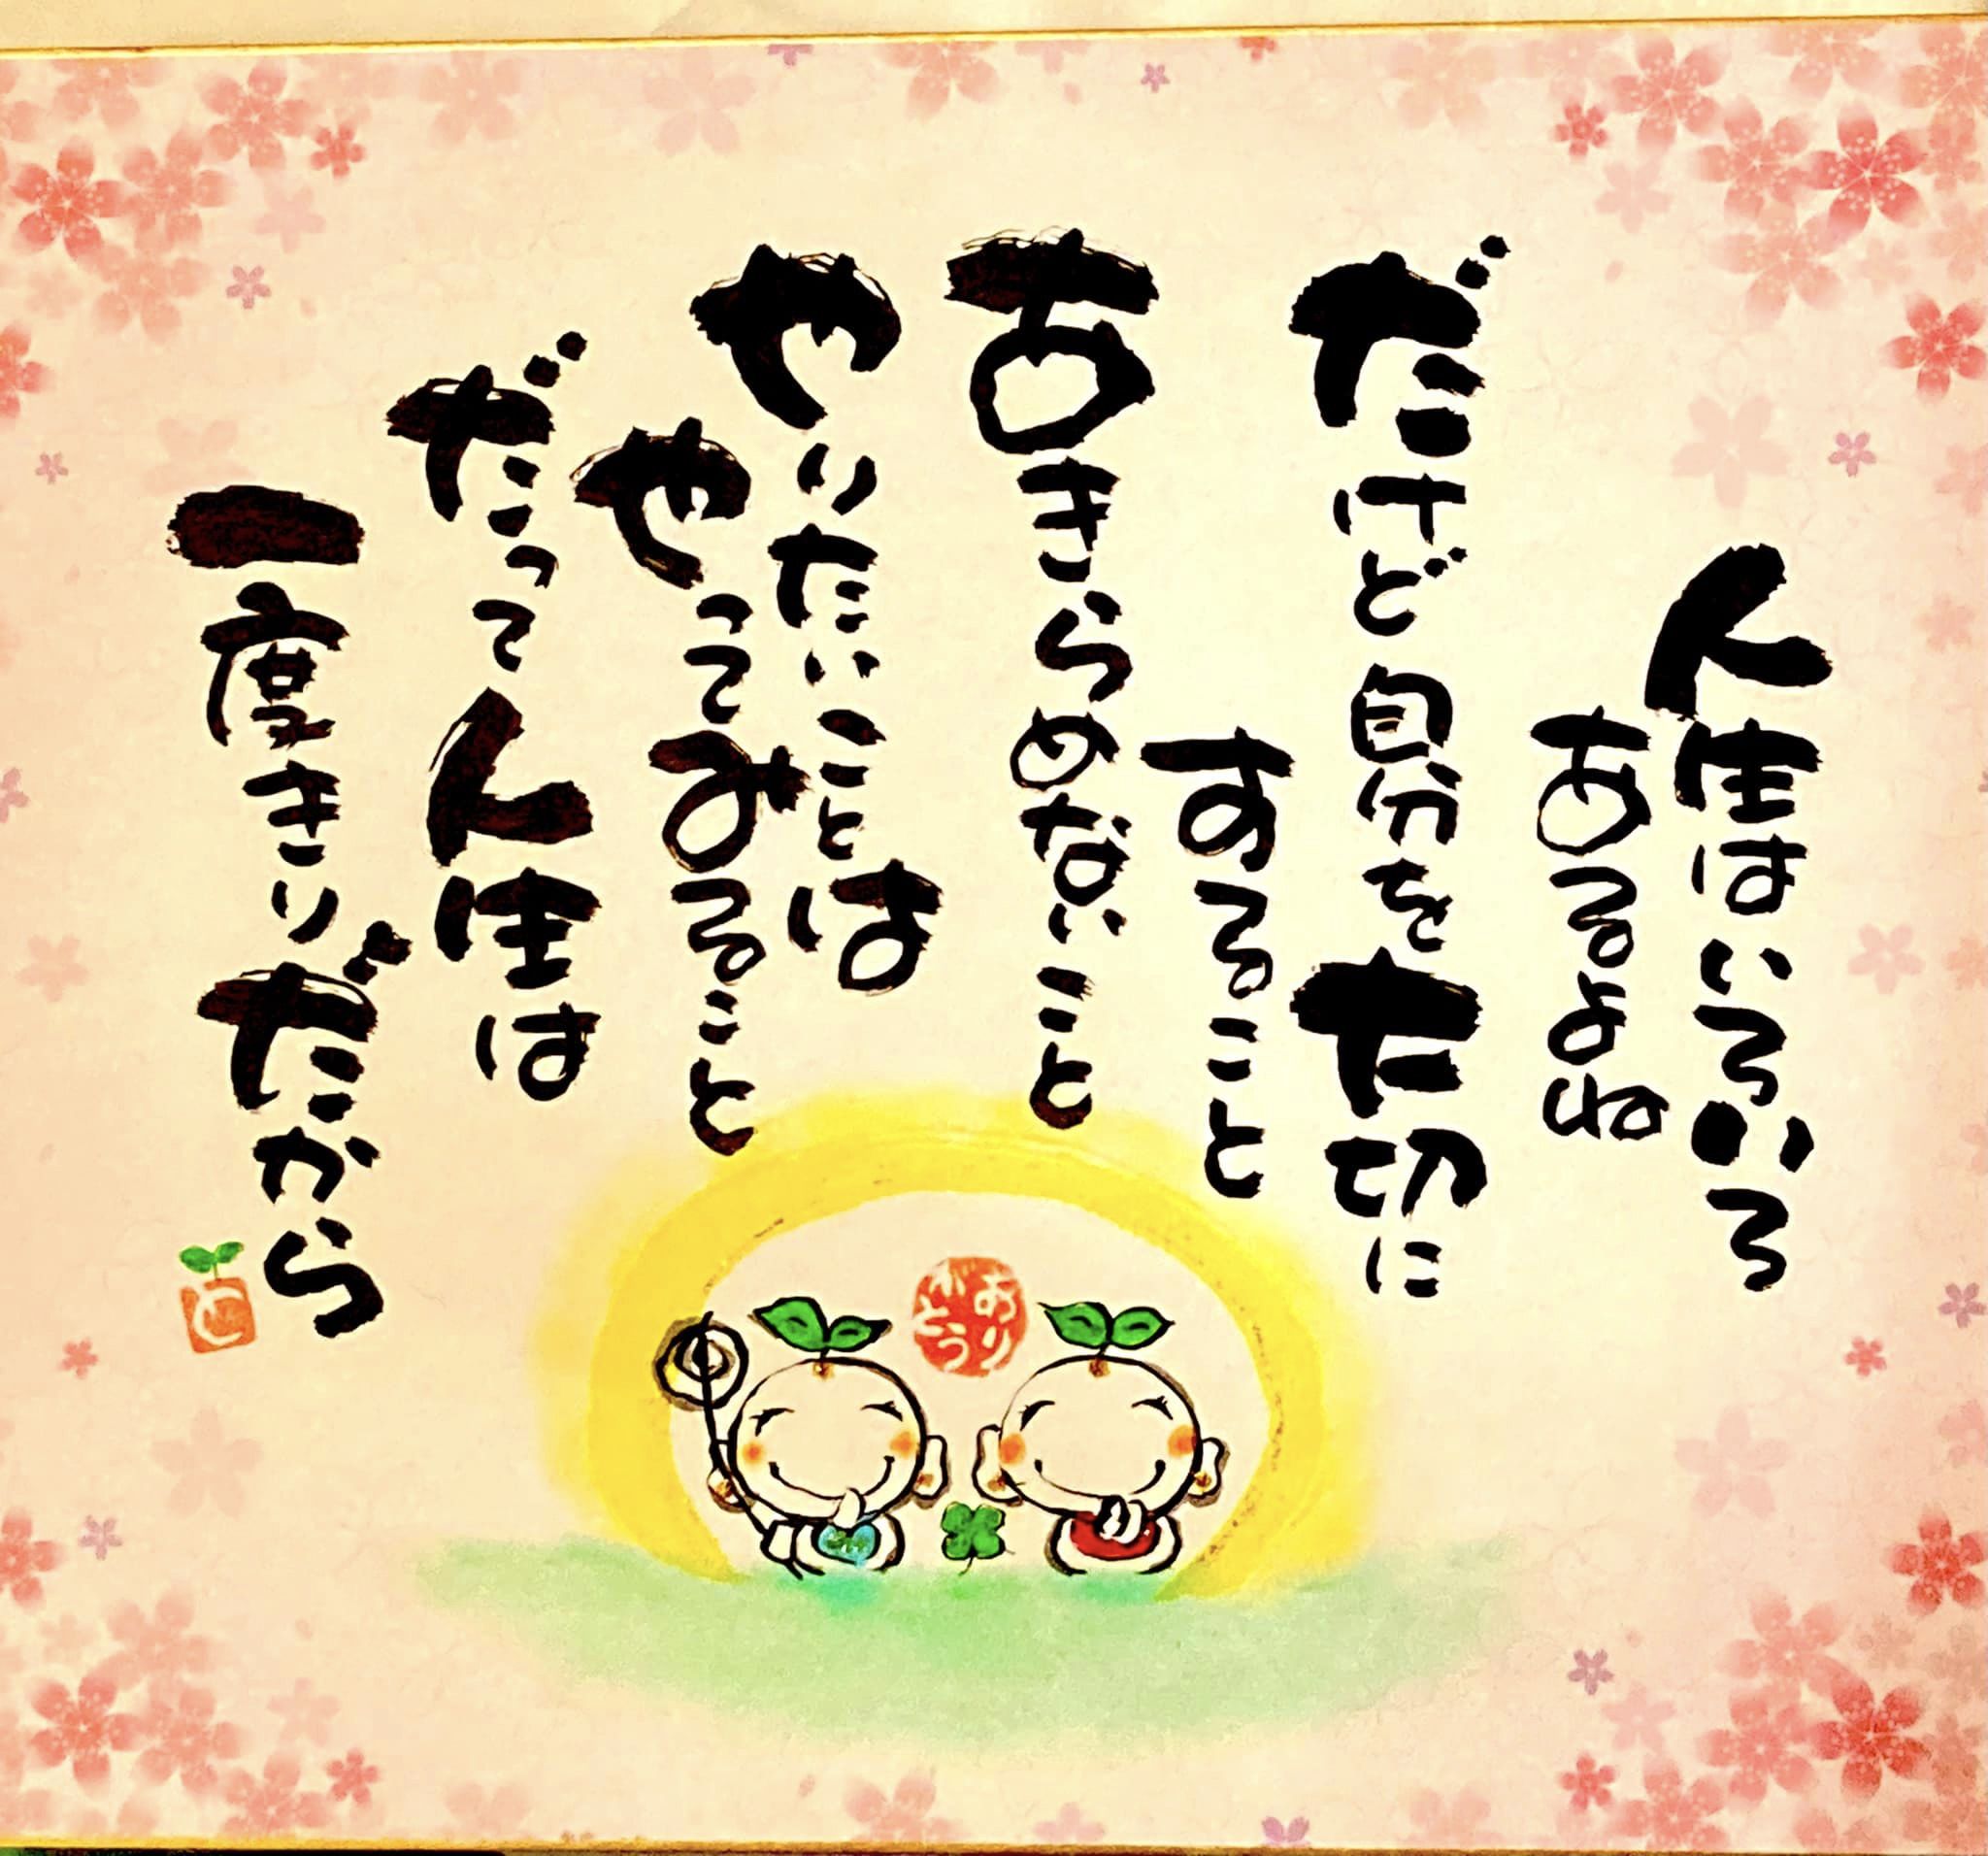 人生はいろいろ
あるよね
だけど自分を大切に
すること
あきらめないこと
やりたいことは
やってみること
だって人生は
一度きりだから
と
ありがとう